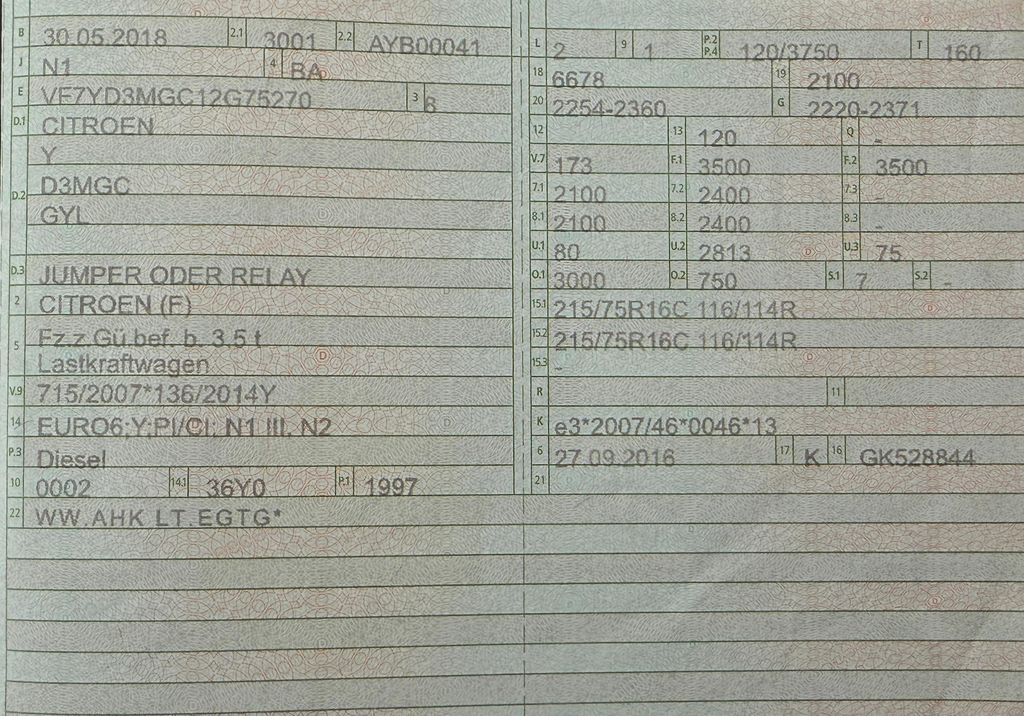 B 30.05.2018 2.1 3001 2.2 AYB00041
J N1 4 BA
E VF7YD3MGC12G75270 3 6
D.1 CITROEN
Y
D.2 D3MGC
GYL
D.3 JUMPER ODER RELAY
2 CITROEN (F)
5 Fz.z.Gü.bef. b. 3,5 t
Lastkraftwagen
V.9 715/2007*136/2014Y
14 EURO6;Y;PI/CI; N1 III, N2
P.3 Diesel
10 0002 14.1 36Y0 P.1 1997
22 WW.AHK LT.EGTG*
L 2 9 1 P.2 P.4 120/3750 T 160
18 6678 19 2100
20 2254-2360 G 2220-2371
12 13 120 Q -
V.7 173 F.1 3500 F.2 3500
7.1 2100 7.2 2400 7.3 -
8.1 2100 8.2 2400 8.3 -
U.1 80 U.2 2813 U.3 75
O.1 3000 O.2 750 S.1 7 S.2 -
15.1 215/75R16C 116/114R
15.2 215/75R16C 116/114R
15.3 -
R 11
K e3*2007/46*0046*13
6 27.09.2016 17 K 16 GK528844
21